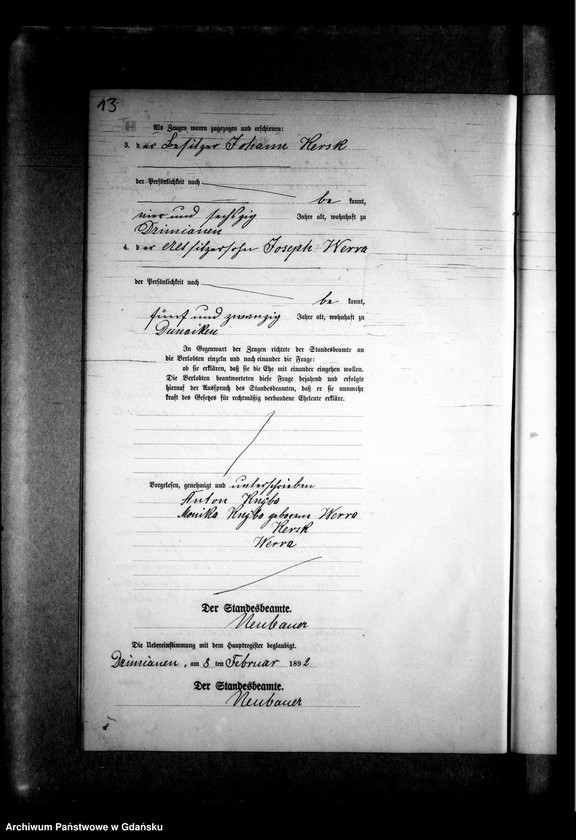 13
Als Zeugen waren zugezogen und erschienen:
3. der Besitzer Johann Kersk
der Persönlichkeit nach
be kannt,
vier und sechzig Jahre alt, wohnhaft zu
Dzimianen
4. der Altsitzersohn Joseph Werra
der Persönlichkeit nach
be kannt,
fünf und zwanzig Jahre alt, wohnhaft zu
Dunaiken
In Gegenwart der Zeugen richtete der Standesbeamte an
die Verlobten einzeln und nach einander die Frage:
ob sie erklären, daß sie die Ehe mit einander eingehen wollen.
Die Verlobten beantworteten diese Frage bejahend und erfolgte
hierauf der Ausspruch des Standesbeamten, daß er sie nunmehr
kraft des Gesetzes für rechtmäßig verbundene Eheleute erkläre.
Vorgelesen, genehmigt und unterschrieben
Anton Knyba
Monika Knyba geborene Werra
Kersk
Werra
Der Standesbeamte.
Neubauer
Die Uebereinstimmung mit dem Hauptregister beglaubigt.
Dzimianen, am 8 ten Februar 1892
Der Standesbeamte.
Neubauer
Archiwum Państwowe w Gdańsku